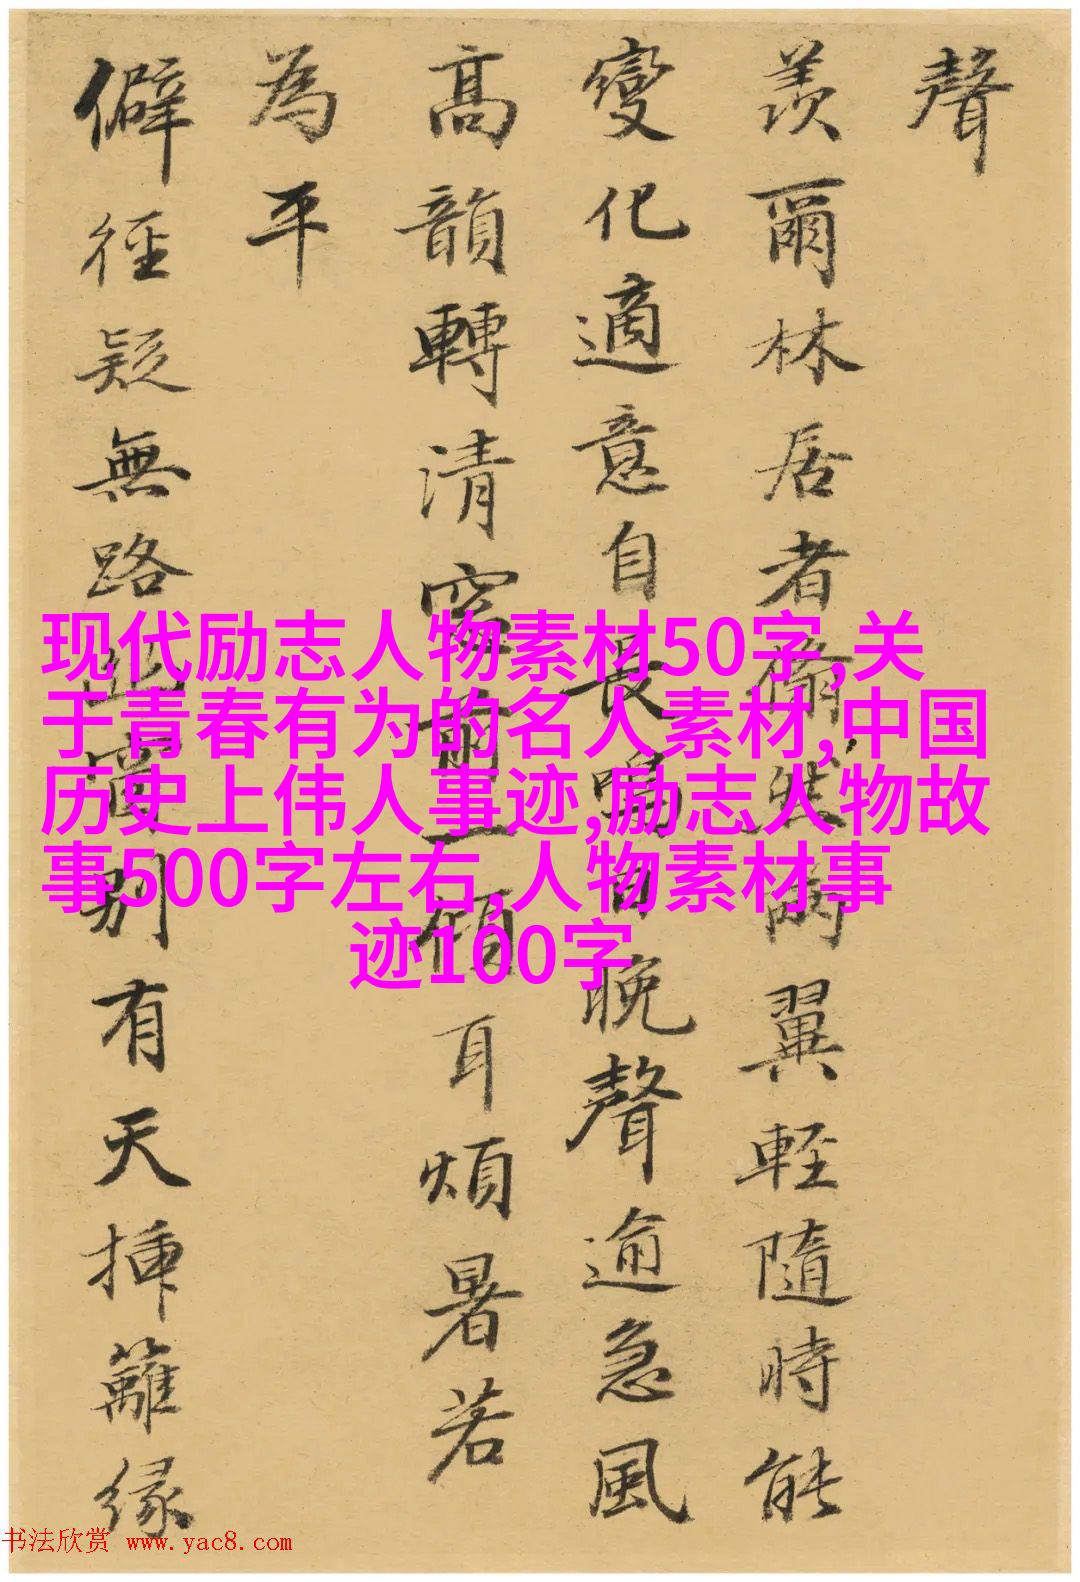 聲
羨爾林居者翛然兩翼輕隨時能
變化適意自長鳴日晚聲逾急風
高韻轉清窗前一傾耳煩暑若
為平
僻徑疑無路別有天插籬緣
现代励志人物素材50字,关
于青春有为的名人素材,中国
历史上伟人事迹,励志人物故
事500字左右,人物素材事
迹100字
书法欣赏 www.yac8.com